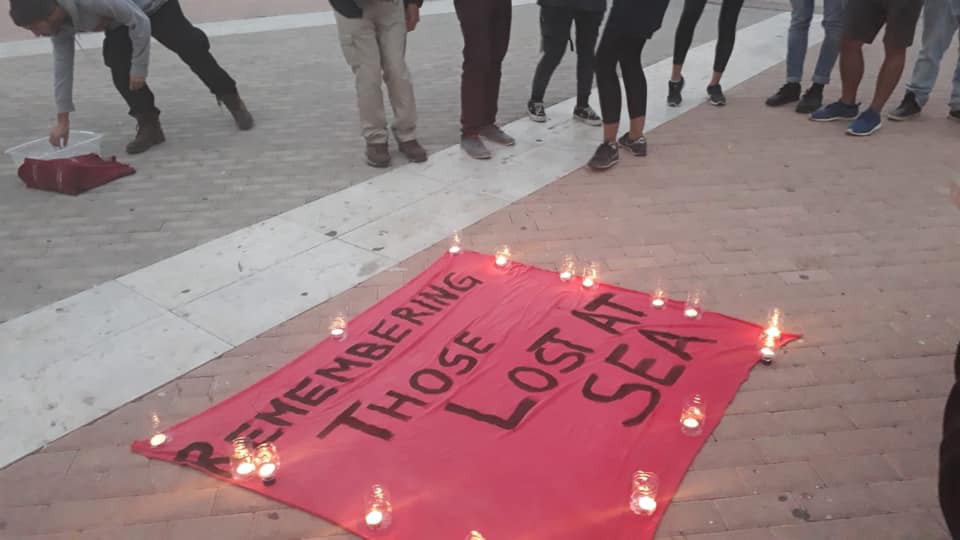 REMEMBERING
THOSE
LOST AT
SEA